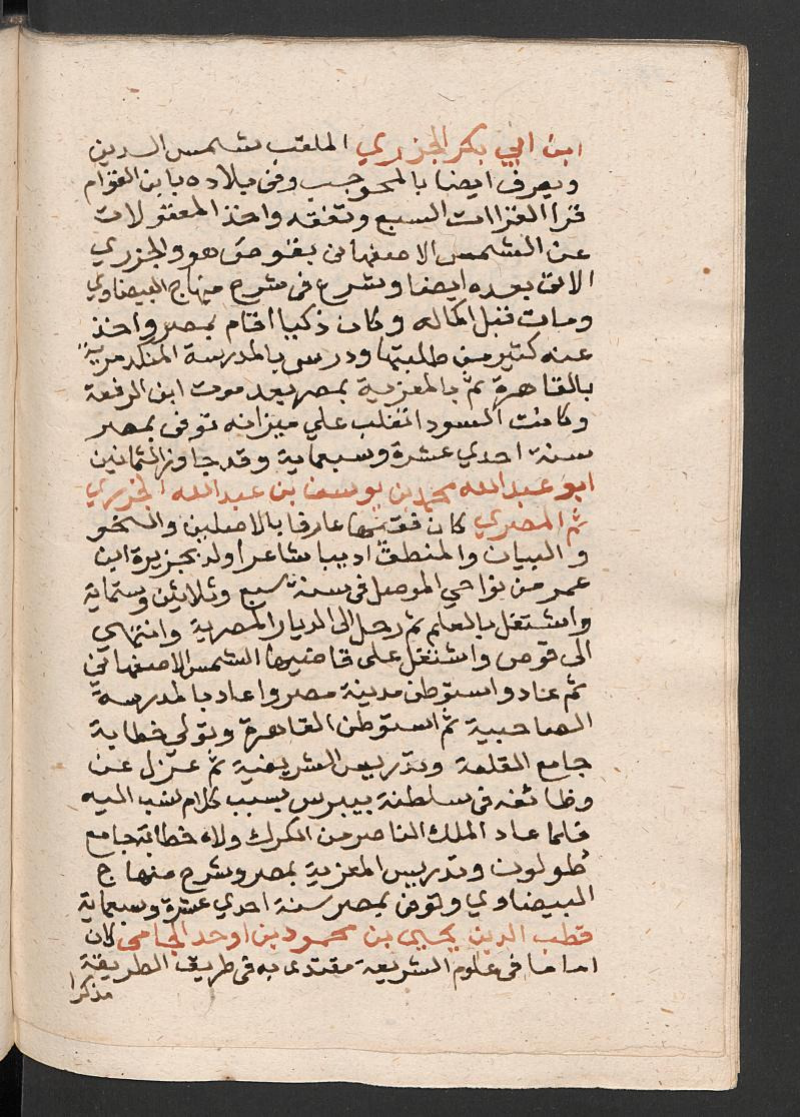 ابن ابي بكر الجزري الملقب بشمس الدين
ويعرف ايضا بالمحوجب وفي بلاده بابن القوام
قرا القراات السبع وتفقه واخذ المعقولات
عن الشمس الاصفهاني بقوص هو والجزري
الاتي بعده ايضا وشرع في شرح منهاج البيضاوي
ومات قبل اكماله وكان ذكيا اقام بمصر واخذ
عنه كثير من طلبتها ودرس بالمدرسة المنكدمرية
بالقاهرة ثم بالمعزية بمصر بعد موت ابن الرفعة
وكانت السودا تغلب علي ميزانه توفي بمصر
سنة احدي عشرة وسبعماية وقد جاوز الثمانين
ابو عبد الله محمد بن يوسف بن عبد الله الجزري
ثم المصري كان فقيها عارفا بالاصلين والنحو
والبيان والمنطق اديبا شاعرا ولد بجزيرة ابن
عمر من نواحي الموصل في سنة سبع وثلاثين وستماية
واشتغل بالعلم ثم رحل الى الديار المصرية وانتهي
الى قوص واشتغل على قاضيها الشمس الاصفهاني
ثم عاد واستوطن مدينة مصر واعاد بالمدرسة
الصاحبية ثم استوطن القاهرة وتولي خطابة
جامع القلعة وتدريس الشريفية ثم عزل عن
وظائفه في سلطنة بيبرس بسبب كلام نسب اليه
فلما عاد الملك الناصر من الكرك ولاه خطابة جامع
طولون وتدريس المعزية بمصر وشرح منهاج
البيضاوي وتوفي بمصر سنة احدي عشرة وسبعماية
قطب الدين يحيي بن محمود بن اوحد الجامي كان
اماما في علوم الشريعة مقتدى به في طريق الطريقة
مذكرا